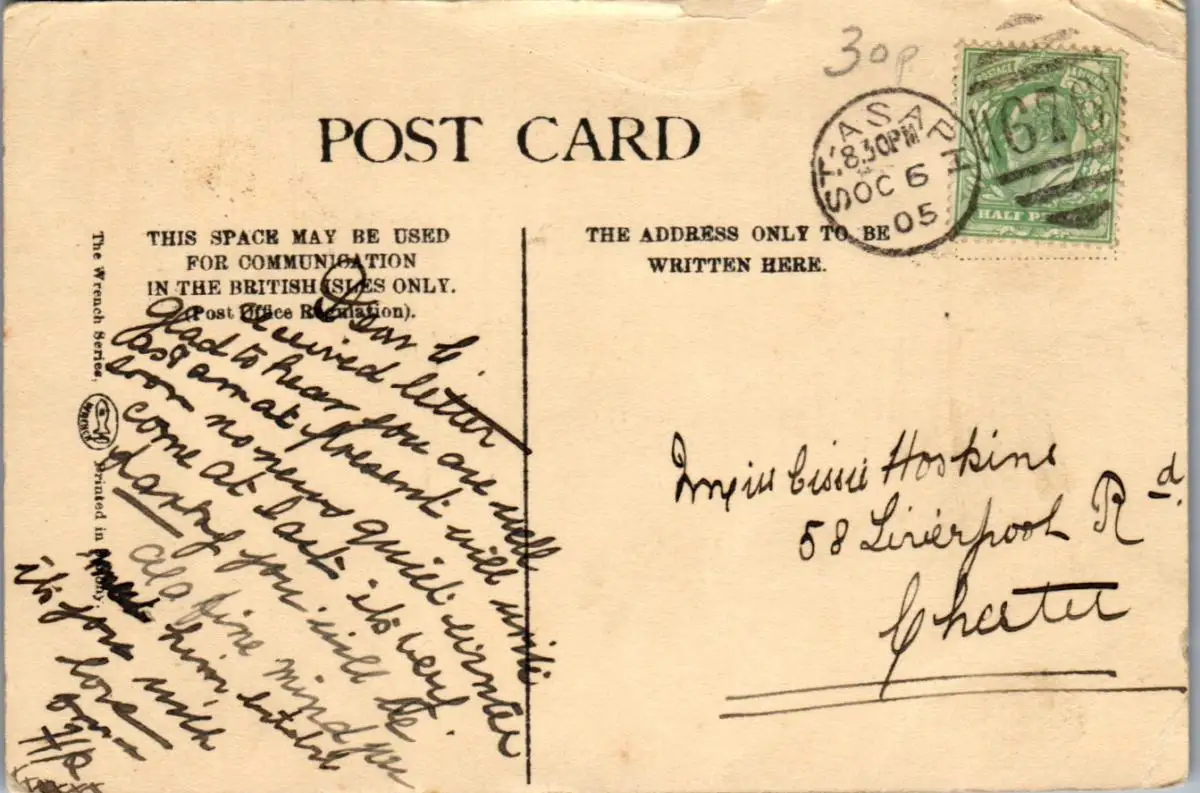 30p
POST CARD
ST. ASAPH
8.30PM
OC 6
05
678
POSTAGE
HALF PE
THIS SPACE MAY BE USED
FOR COMMUNICATION
IN THE BRITISH ISLES ONLY.
(Post Office Regulation).
THE ADDRESS ONLY TO BE
WRITTEN HERE.
The Wrench Series,
WRENCH
Printed in Saxony.
Dear C.
received letter
glad to hear you are well
as I am at present will write
soon no news quiet winter
come at last it's very
you will be
fine mind you
him
it's you
love
Miss Cissie Hoskins
58 Liverpool Rd
Chester